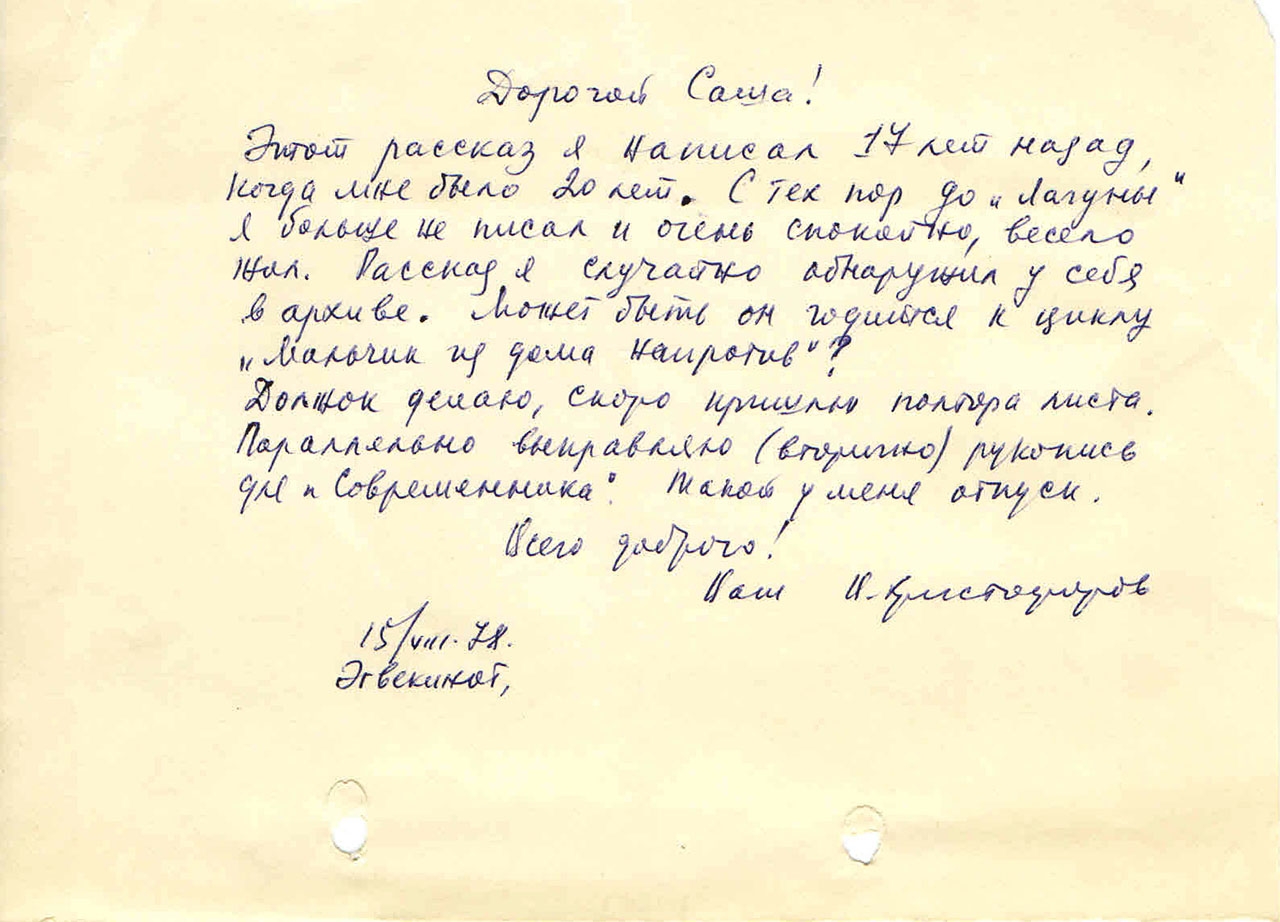 Дорогой Саша!
Этот рассказ я написал 17 лет назад,
когда мне было 20 лет. С тех пор до „Лагуны"
я больше не писал и очень спокойно, весело
жил. Рассказ я случайно обнаружил у себя
в архиве. Может быть он годится к циклу
„Мальчик из дома напротив"?
Должок делаю, скоро пришлю полтора листа.
Параллельно выправляю (вторично) рукопись
для „Современника". Такой у меня отпуск.
Всего доброго!
Ваш В. Христофоров
15/VIII-78.
Эгвекинот,